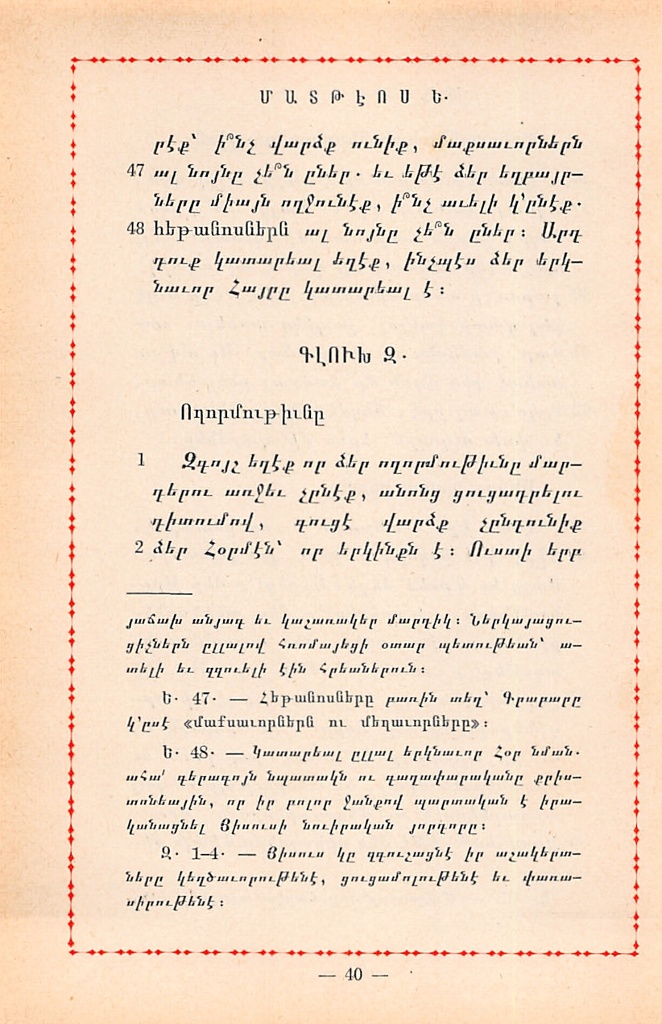 ՄԱՏԹԷՈՍ Ե.
րէք՝ ի՞նչ վարձք ունիք, մաքսաւորներն
47 ալ նոյնը չե՞ն ըներ. եւ եթէ ձեր եղբայր-
ները միայն ողջունէք, ի՞նչ աւելի կ՚ընէք.
48 հեթանոսներն ալ նոյնը չե՞ն ըներ։ Արդ
դուք կատարեալ եղէք, ինչպէս ձեր երկ-
նաւոր Հայրը կատարեալ է։
ԳԼՈՒԽ Զ.
Ողորմութիւնը
1 Զգոյշ եղէք որ ձեր ողորմութիւնը մար-
դերու առջեւ չընէք, անոնց ցուցադրելու
դիտումով, գուցէ վարձք չընդունիք
2 ձեր Հօրմէն՝ որ երկինքն է։ Ուստի երբ
յաճախ անյագ եւ կաշառակեր մարդիկ։ Ներկայացու-
ցիչներն ըլլալով Հռոմայեցի օտար պետութեան՝ ա-
տելի եւ զզուելի էին Հրեաներուն։
Ե. 47. — Հեթանոսները բառին տեղ՝ Գրաբարը
կ՚ըսէ «մաքսաւորներն ու մեղաւորները»։
Ե. 48. — Կատարեալ ըլլալ երկնաւոր Հօր նման.
ահա՛ գերագոյն նպատակն ու գաղափարականը քրիս-
տոնեային, որ իր բոլոր ջանքով պարտական է իրա-
կանացնել Յիսուսի նուիրական յորդորը։
Զ. 1-4. — Յիսուս կը զգուշացնէ իր աշակերտ-
ները կեղծաւորութենէ, ցուցամոլութենէ եւ փառա-
սիրութենէ։
— 40 —